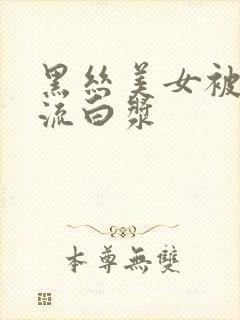 黑丝美女被
流白漿
本尊無雙